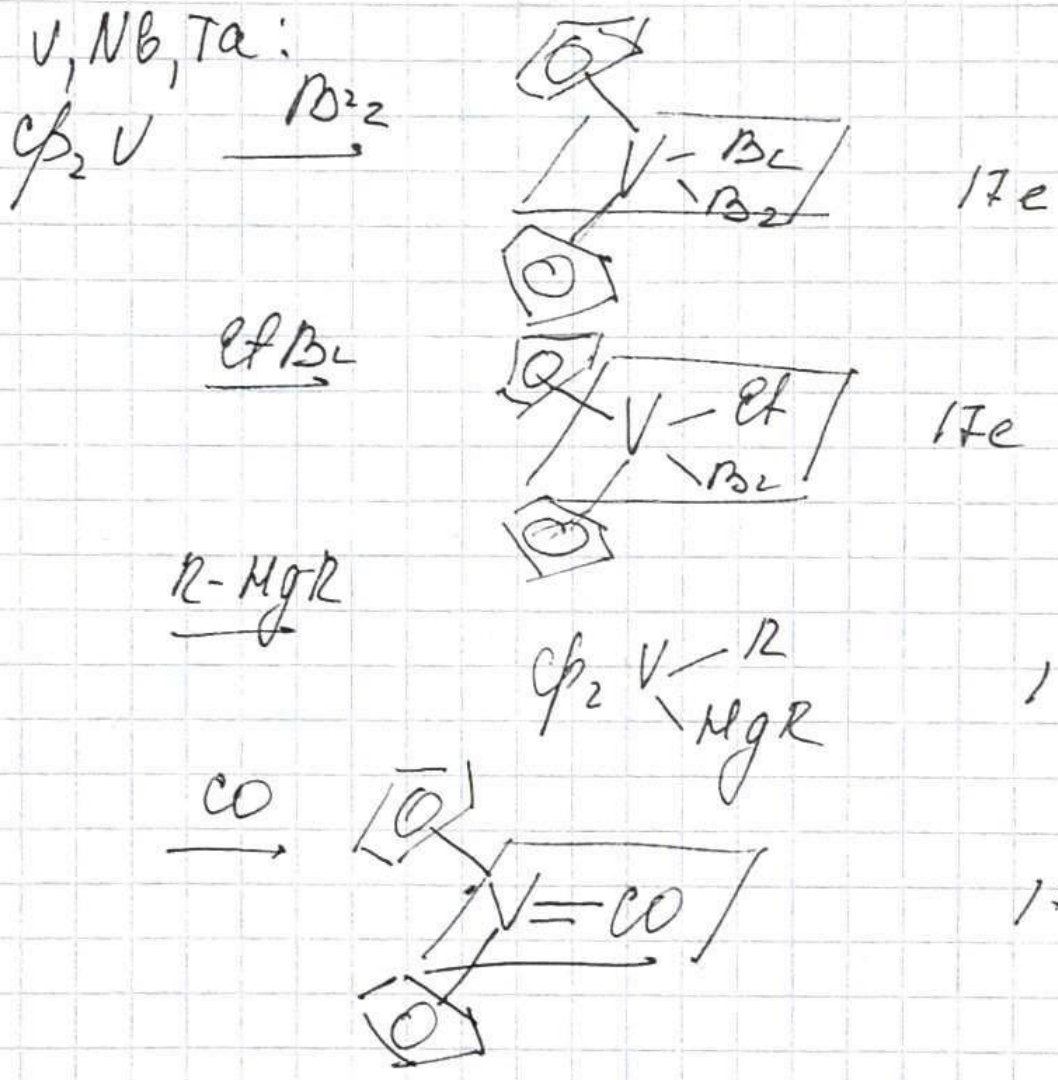 V, Nb, Ta:
Cp₂ V → Br₂
V - Br
Br
17e
EtBr →
V - Et
Br
17e
R-MgR →
Cp₂ V - R
MgR
1
CO →
V = CO